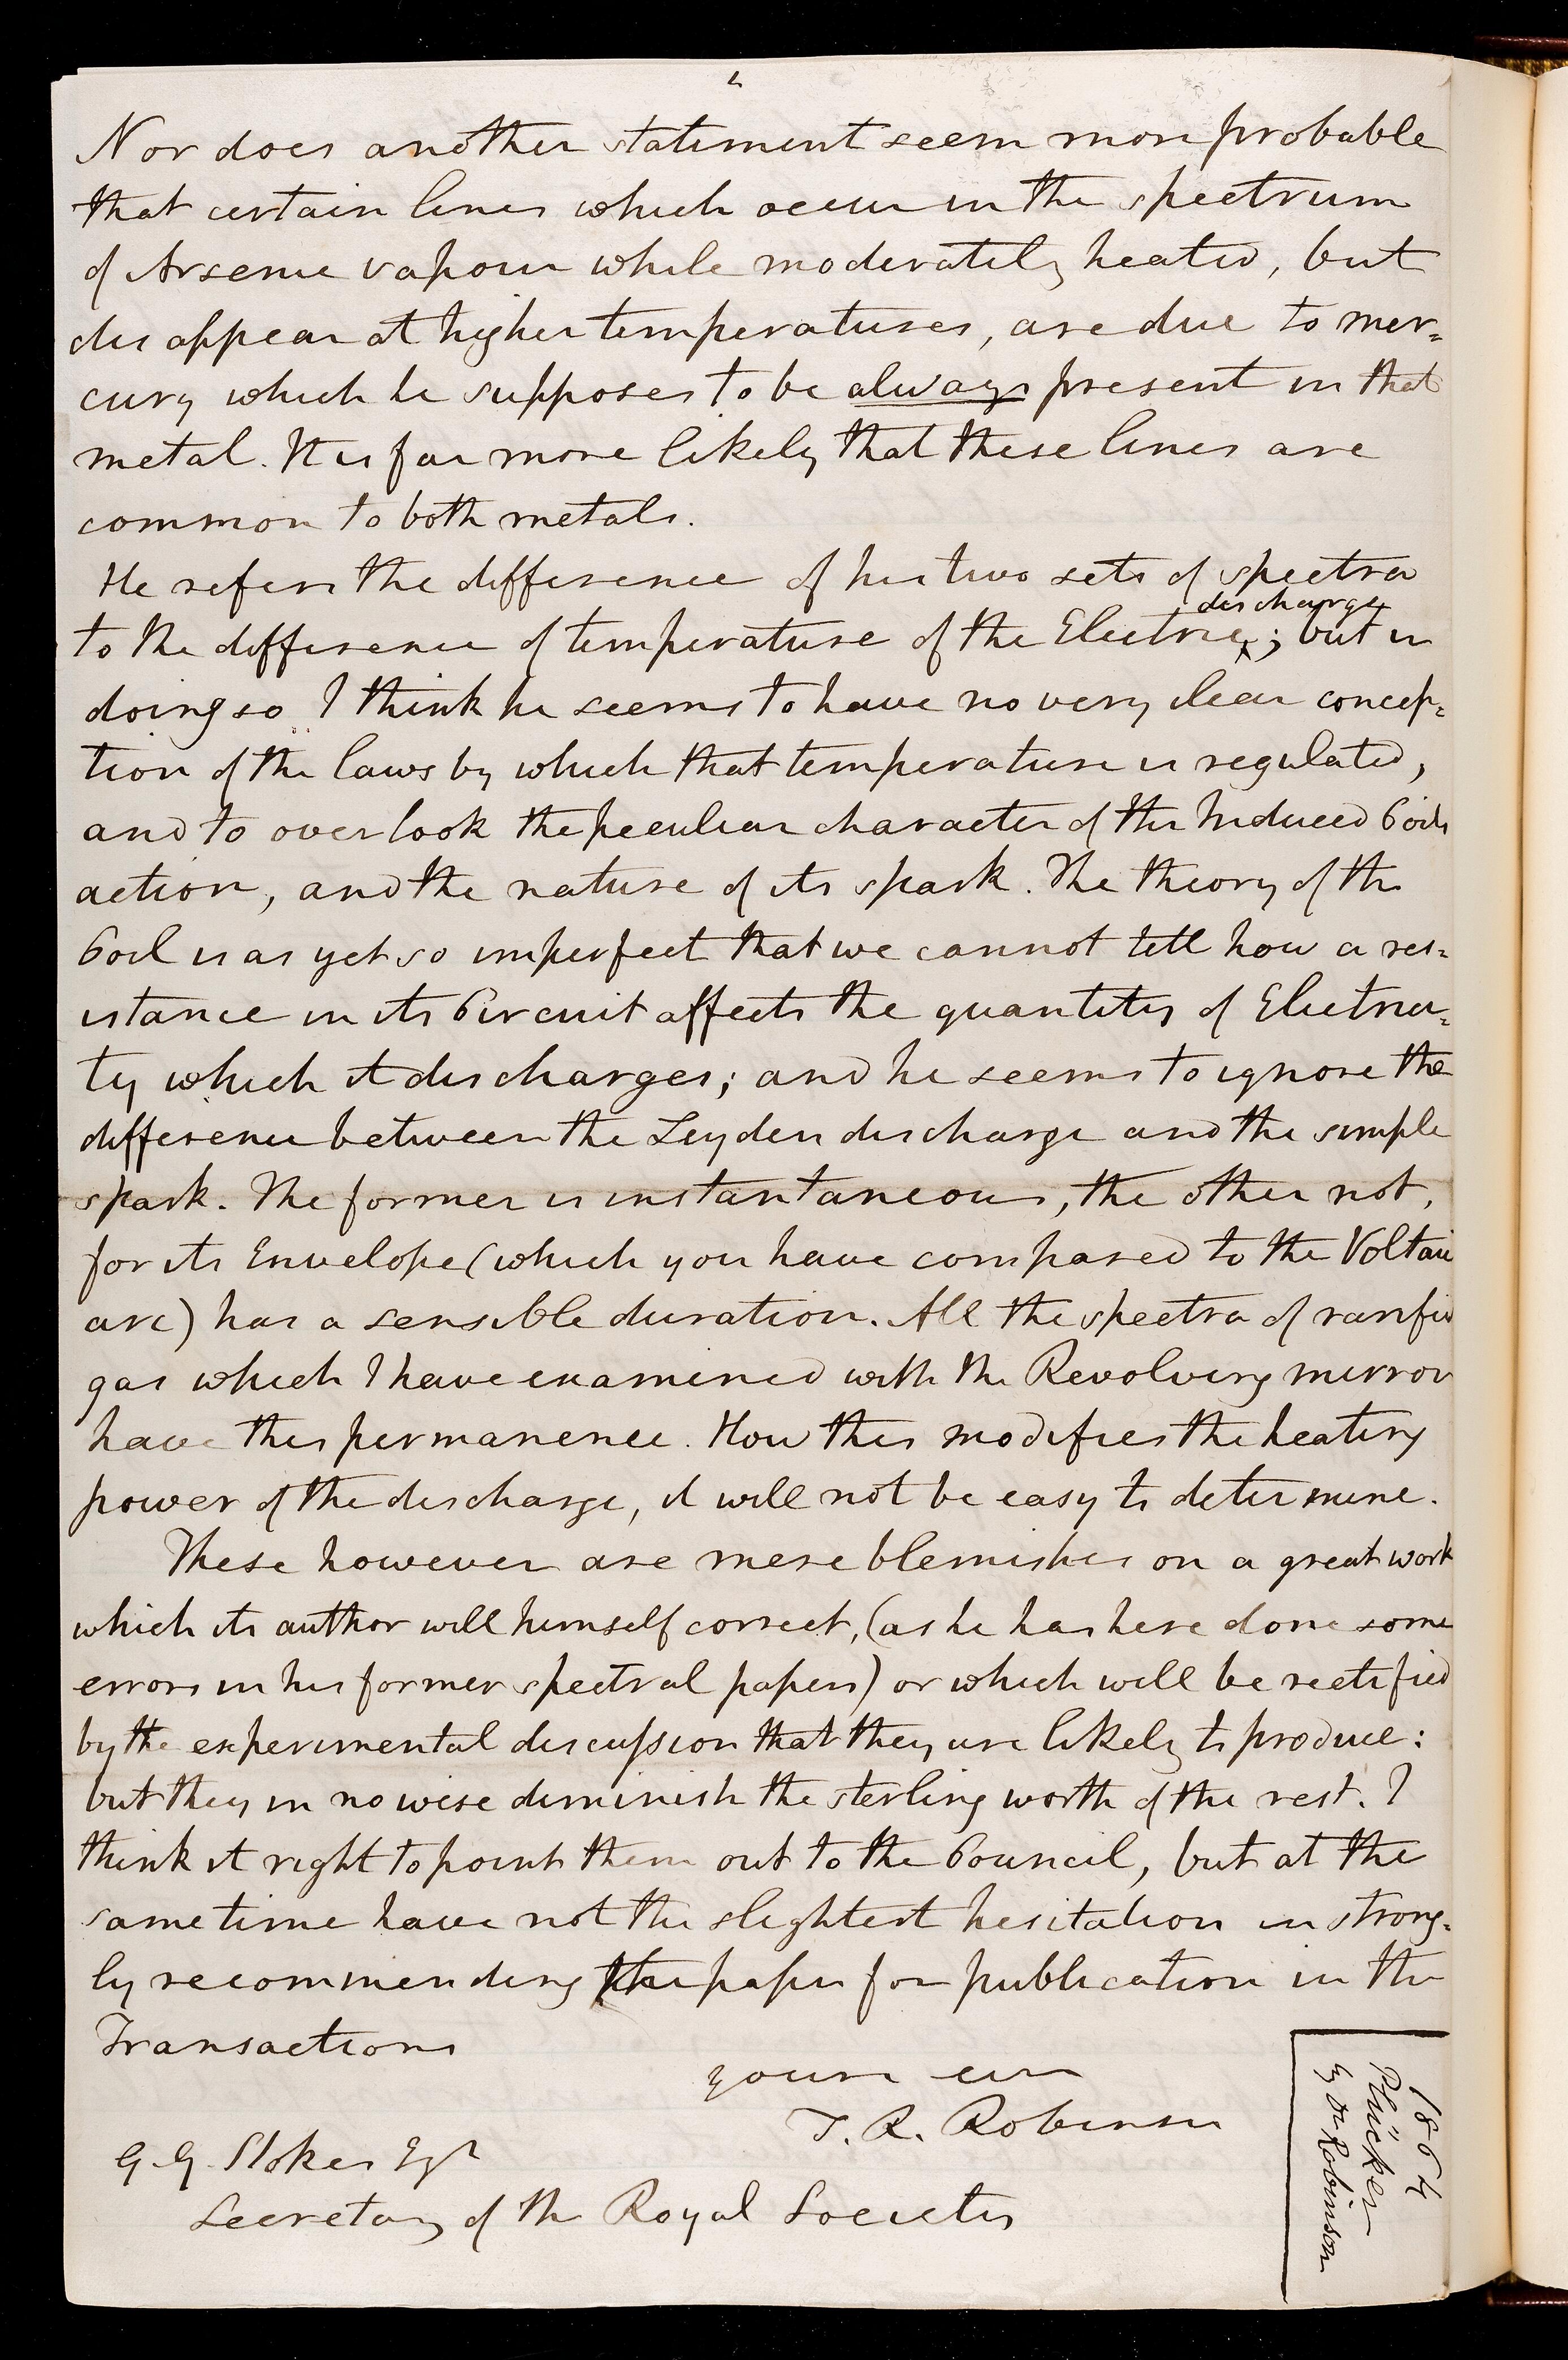 Nor does another statement seem more probable
that certain lines which occur in the spectrum
of Arsenic vapour while moderately heated, but
disappear at higher temperatures, are due to mer=
cury which he supposes to be always present in that
metal. It is far more likely that these lines are
common to both metals.
He refers the difference of his two sets of spectra
to the difference of temperature of the Electric discharge; but in
doing so I think he seems to have no very clear concep=
tion of the laws by which that temperature is regulated,
and to overlook the peculiar character of the Induced Coils
action, and the nature of its spark. The theory of the
Coil is as yet so imperfect that we cannot tell how a res=
istance in its Circuit affects the quantity of Electrici=
ty which it discharges; and he seems to ignore the
difference between the Leyden discharge and the simple
spark. The former is instantaneous, the other not,
for its Envelope (which you have compared to the Voltaic
arc) has a sensible duration. All the spectra of rarified
gas which I have examined with the Revolving mirror
have this permanence. How this modifies the heating
power of the discharge, it will not be easy to determine.
These however are mere blemishes on a great work
which its author will himself correct, (as he has here done some
errors in his former spectral papers) or which will be rectified
by the experimental discussion that they are likely to produce:
but they in nowise diminish the sterling worth of the rest. I
think it right to point them out to the Council, but at the
same time have not the slightest hesitation in strong=
ly recommending the paper for publication in the
Transactions
yours ever
T. R. Robinson
G. G. Stokes Esqr
Secretary of the Royal Society
1864
Plücker
by Dr Robinson